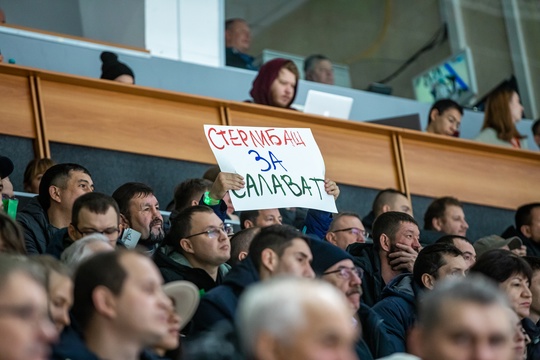 СТЕРЛИБАШ
ЗА
САЛАВАТ